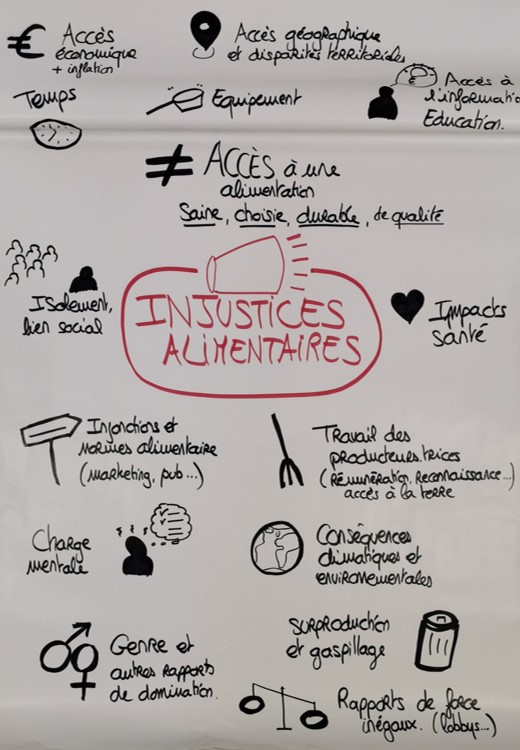 € Accès
économique
+ inflation
Accès géographique
et disparités territoriales
Accès à
l'informatio
Education.
Temps
Equipement
≠ ACCÈS à une
alimentation
Saine, choisie, durable, de qualité
INJUSTICES
ALIMENTAIRES
Isolement,
lien social
Impacts
santé
Injonctions et
normes alimentaire
(marketing, pub...)
Travail des
producteurs.trices
(Rémunération, Reconnaissance...)
accès à la terre
Charge
mentale
Conséquences
climatiques et
environnementales
Genre et
autres rapports
de domination.
SURPRODUCTION
et gaspillage
Rapports de force
inégaux. (lobbys...)